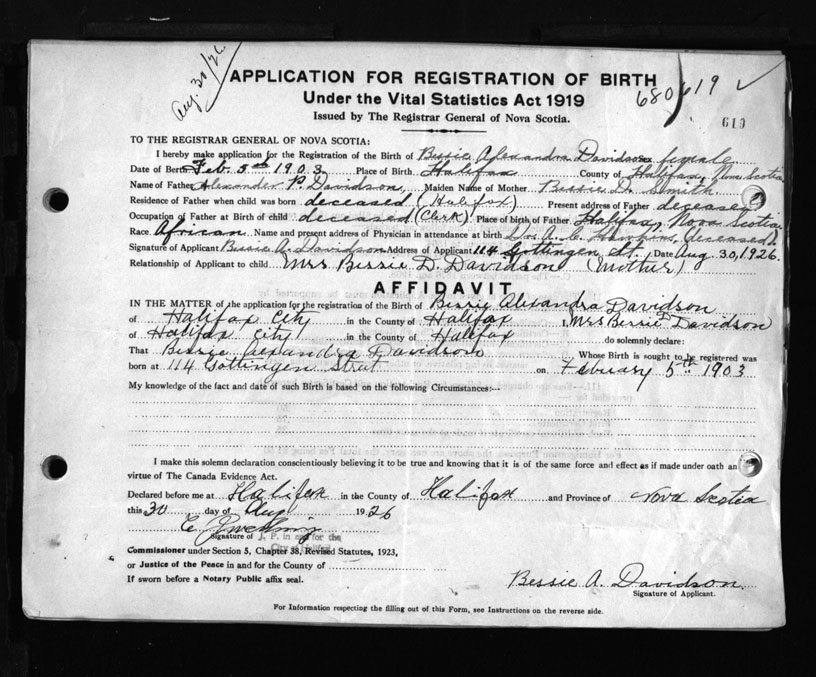 Aug. 30/26.
APPLICATION FOR REGISTRATION OF BIRTH
680619
Under the Vital Statistics Act 1919
Issued by The Registrar General of Nova Scotia.
619
TO THE REGISTRAR GENERAL OF NOVA SCOTIA:
I hereby make application for the Registration of the Birth of Bessie Alexandra Davidson Sex female
Date of Birth Feb. 5th 1903 Place of Birth Halifax County of Halifax, Nova Scotia
Name of Father Alexander P. Davidson, Maiden Name of Mother Bessie D. Smith
Residence of Father when child was born deceased (Halifax) Present address of Father deceased
Occupation of Father at Birth of child deceased (Clerk) Place of birth of Father Halifax, Nova Scotia
Race African Name and present address of Physician in attendance at birth A. C. Hawkins, deceased
Signature of Applicant Bessie A. Davidson Address of Applicant 114 Gottingen St. Date Aug 30, 1926.
Relationship of Applicant to child Mrs Bessie D. Davidson (Mother)
AFFIDAVIT
IN THE MATTER of the application for registration of the Birth of Bessie Alexandra Davidson
of Halifax City in the County of Halifax I, Mrs Bessie D Davidson
of Halifax City in the County of Halifax do solemnly declare:
That Bessie Alexandra Davidson Whose Birth is sought to be registered was
born at 114 Gottingen Street on February 5th 1903
My knowledge of the fact and date of such Birth is based on the following Circumstances:--
I make this solemn declaration conscientiously believing it to be true and knowing that it is of the same force and effect as if made under oath an
virtue of The Canada Evidence Act.
Declared before me at Halifax in the County of Halifax and Province of Nova Scotia
this 30 day of Aug 1926
Signature of J. P. in and for the
Commissioner under Section 5, Chapter 38, Revised Statutes, 1923,
or Justice of the Peace in and for the County of
If sworn before a Notary Public affix seal.
Bessie A. Davidson
Signature of Applicant.
For Information respecting the filling out of this Form, see Instructions on the reverse side.